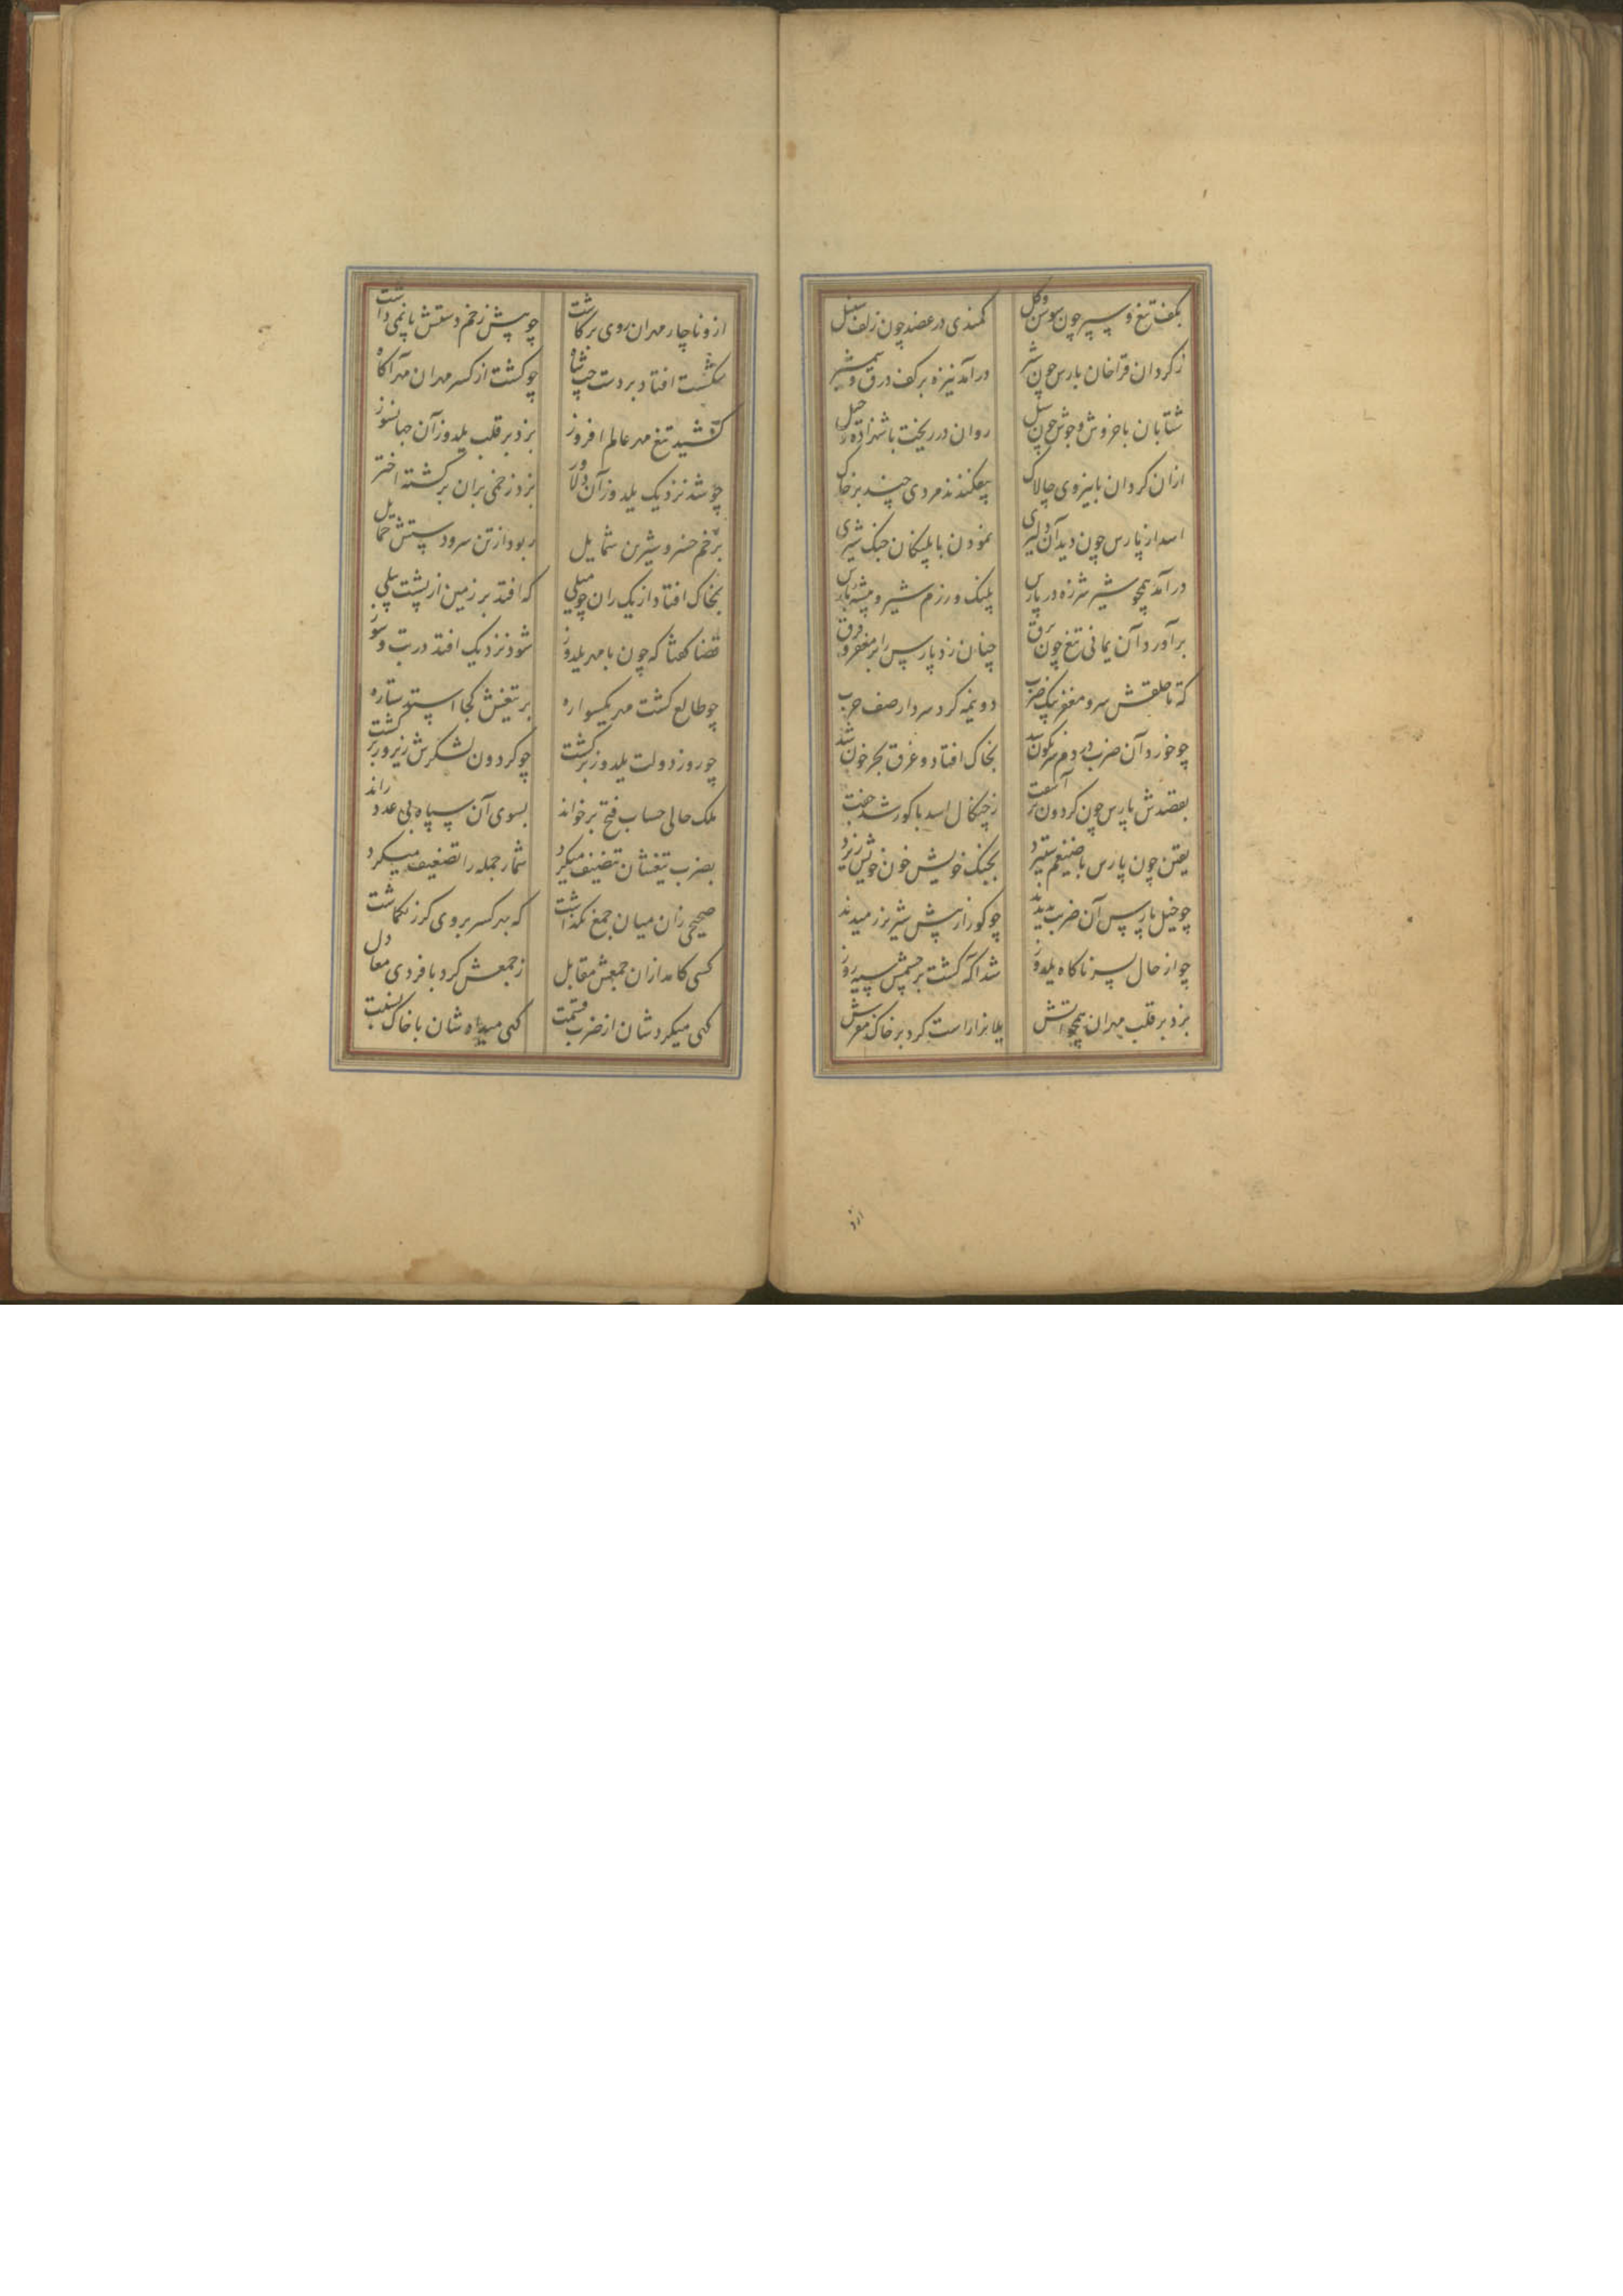 بکف تیغ و سپر چون سوسن و گل کمندی در عضد چون زلف سنبل
ز کردان قراخان بارس چون شیر درآمد نیزه بر کف درق و شمشیر
شتابان با خروش و جوش چون سیل روان در ریخت با شهزاده خیل
ازان کردان با نیروی چالاک بیفکندند مردی چند بر خاک
اسد از پارس چون دید آن دلیری نمودن با پلنکان جنک شیری
درآمد همچو شیر شرزه در پارس پلنک و رزم شیر و پارس
برآورد آن یمانی تیغ چون برق چنان زد پارس را بر مغفر و فرق
که تا حلقش سر و مغفر بیک ضرب دو نیمه کرد سردار صف حرب
چو خورد آن ضرب در دم سرنکون شد بخاک افتاد و غرق بحر خون شد
بقصدش پارس چون کردون بر آشفت ز چنکال اسد با کور شد جفت
یقین چون پارس با ضیغم ستیزد بجنک خویش خون خویش ریزد
چو خیل پارس آن ضرب بدیدند چو کور از پیش شیر نر رمیدند
چو از حال پسر ناکاه یلدوز شد اکه کشت بر چشمش سیه روز
بزد بر قلب مهران همچو آتش یلانرا راست کرد بر خاک مفرش
ازو ناچار مهران روی برکاشت چو پیش زخم دستش پا نمی داشت
شکست افتاد بر دست چپ شاه چو کشت از کسر مهران مهر آکاه
کشید تیغ مهر عالم افروز بزد بر قلب یلدوز آن جهانسوز
چو شد نزدیک یلدوز آن دلاور بزد زخمی بران برکشته اختر
بزخم خسرو شیرین شمایل ربود از تن سر و دستش حمایل
بخاک افتاد از یک ران چو میلی که افتد بر زمین از پشت پیلی
قضا کفتا که چون با مهر یلدوز شود نزدیک افتد در تب و سوز
چو طالع کشت مهر یکسواره بر تیغش کجا استد ستاره
چو روز دولت یلدوز برکشت چو کردون لشکرش زیر و زبر کشت
ملک حالی حساب فتح بر خواند بسوی آن سپاه بی عدد راند
بضرب تیغشان تضیف میکرد شمار جمله را تضعیف میکرد
صحیحی زان میان جمع نکذاشت که بهر کسر بروی کرز نکماشت
کسی کامد ازان جمعش مقابل ز جمعش کرد با فردی معادل
کهی میکردشان از ضرب قسمت کهی میداد شان با خاک نسبت
ازو